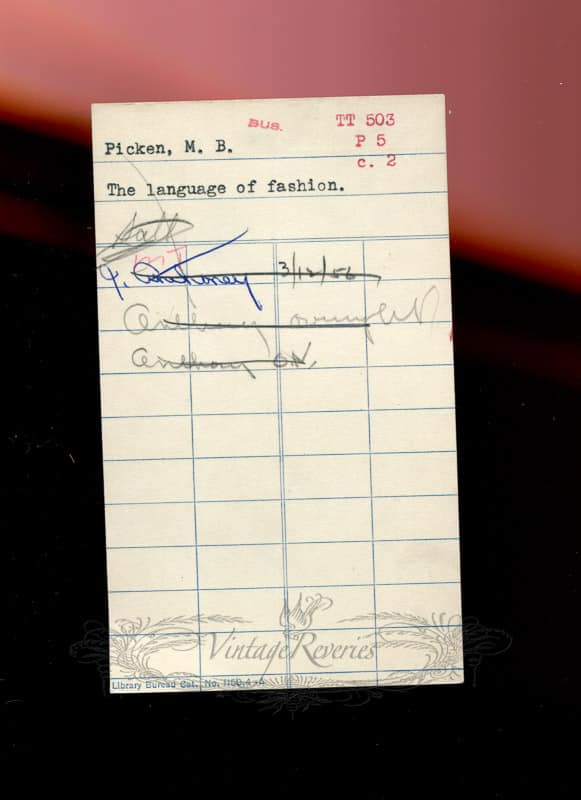 BUS.
TT 503
Picken, M. B.
P 5
c. 2
The language of fashion.
3/12/56
Anthony overnight
Anthony ON.
Vintage Reveries
Library Bureau Cat. No. 1160.4